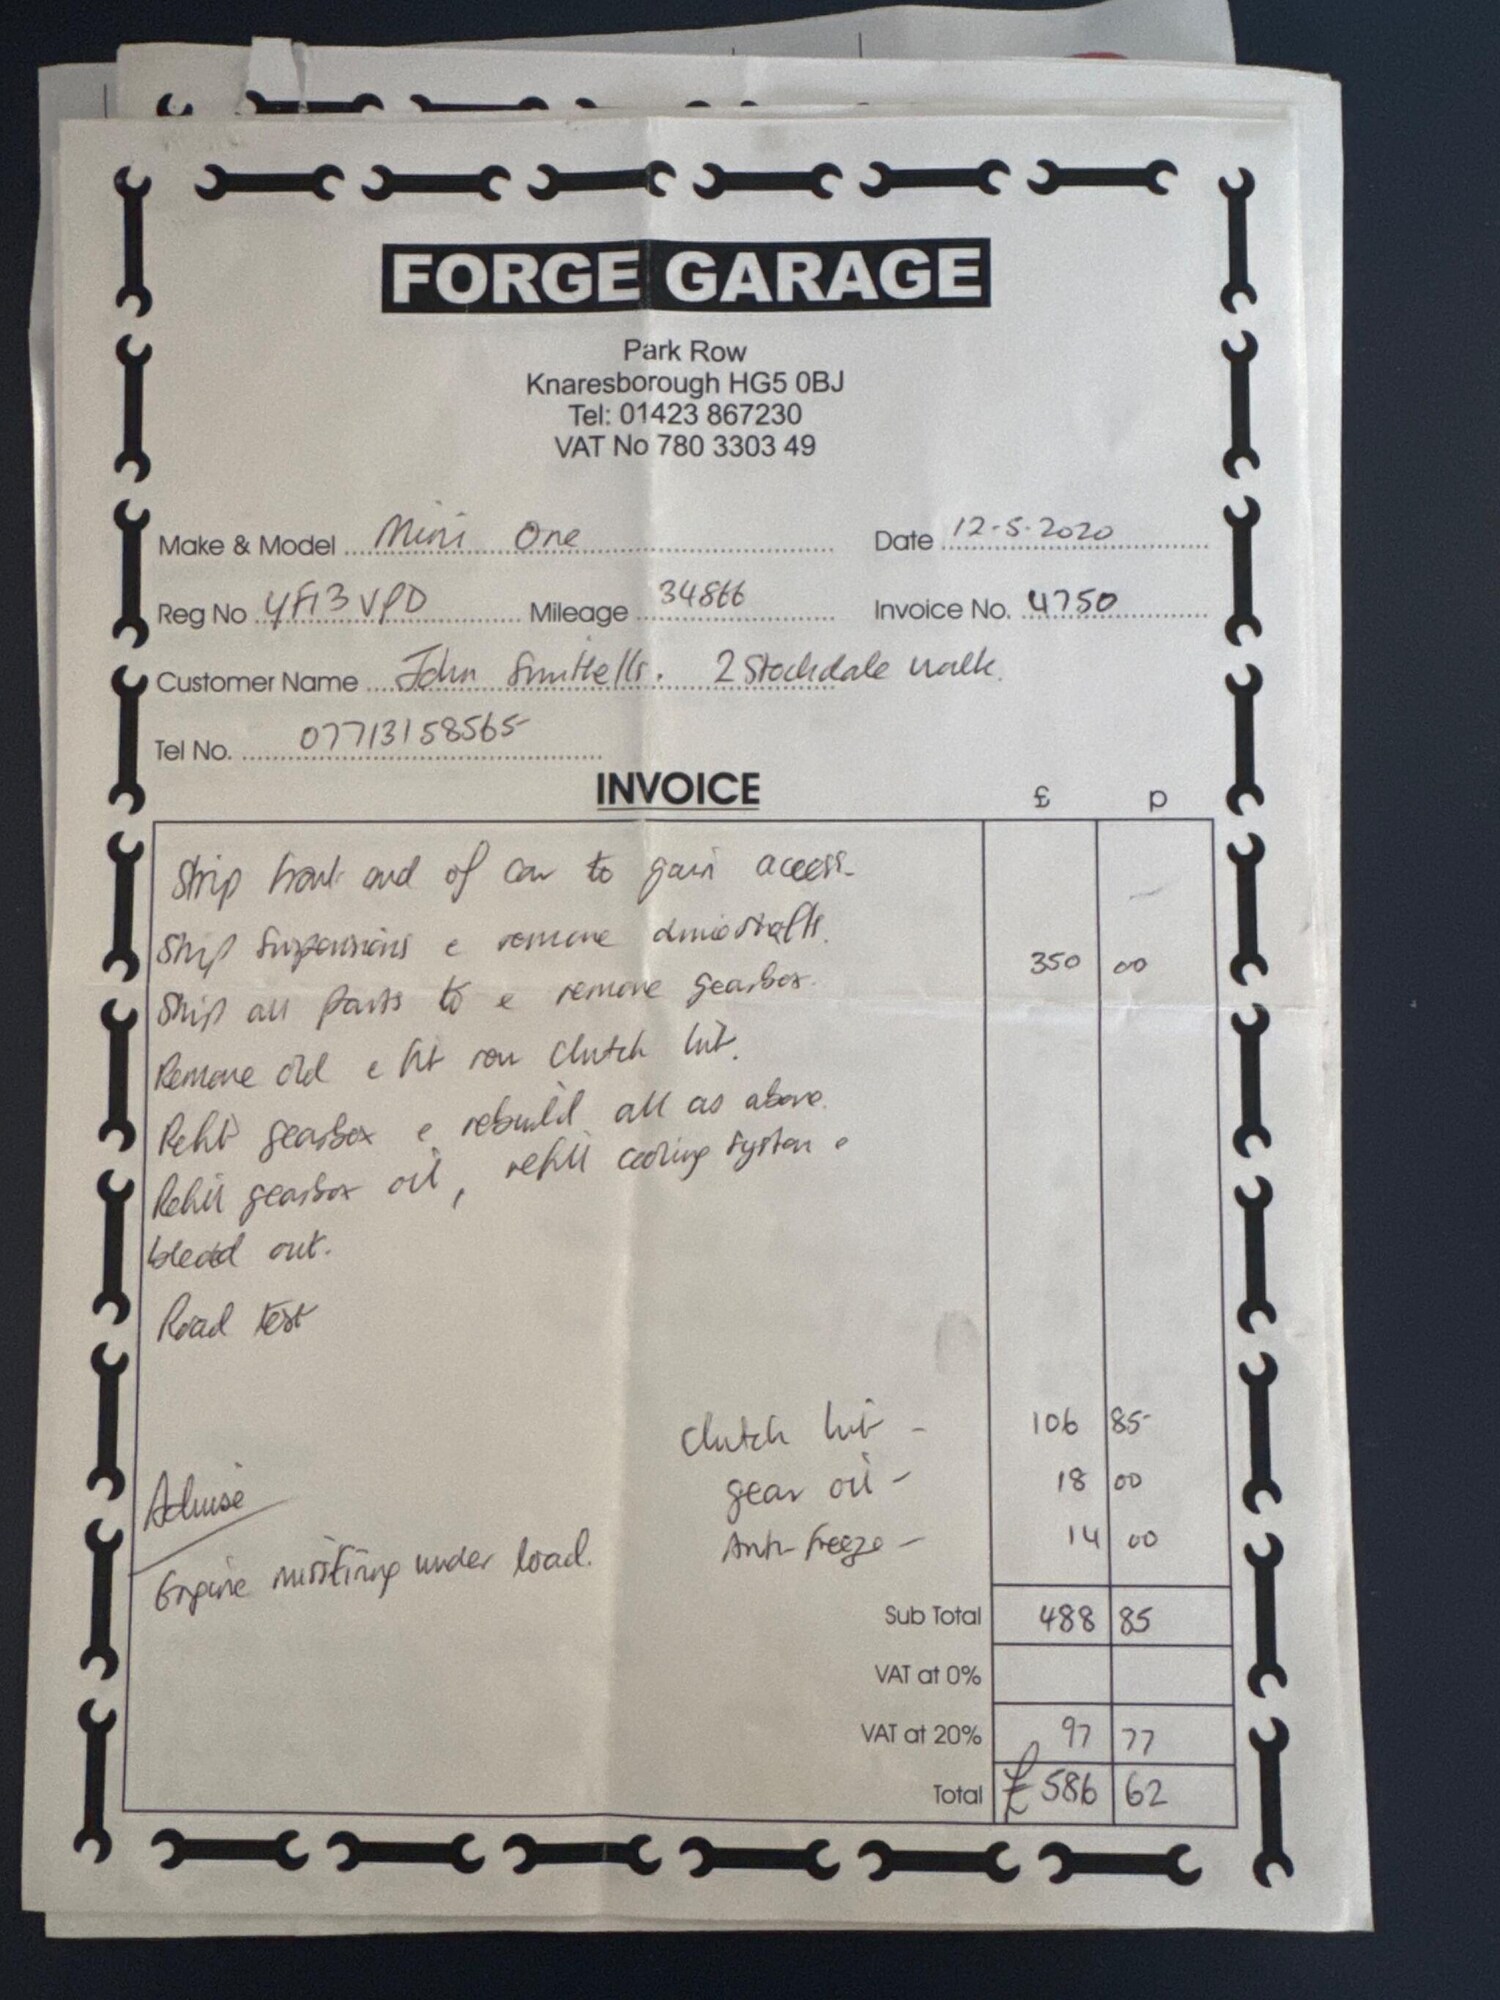 FORGE GARAGE
Park Row
Knaresborough HG5 0BJ
Tel: 01423 867230
VAT No 780 3303 49
Make & Model Mini One Date 12-5-2020
Reg No YF13VPD Mileage 34866 Invoice No. 4750
Customer Name John Smithells. 2 Stockdale walk.
Tel No. 07713158565
INVOICE £ p
Strip front end of car to gain access.
Strip suspensions & remove driveshafts.
Strip all parts to & remove gearbox. 350 00
Remove old & fit new clutch kit.
Refit gearbox & rebuild all as above.
Refill gearbox oil, refill cooling system &
bleed out.
Road test
Clutch kit - 106 85
gear oil - 18 00
Anti-freeze - 14 00
Advise
Engine misfiring under load.
Sub Total 488 85
VAT at 0%
VAT at 20% 97 77
Total £586 62